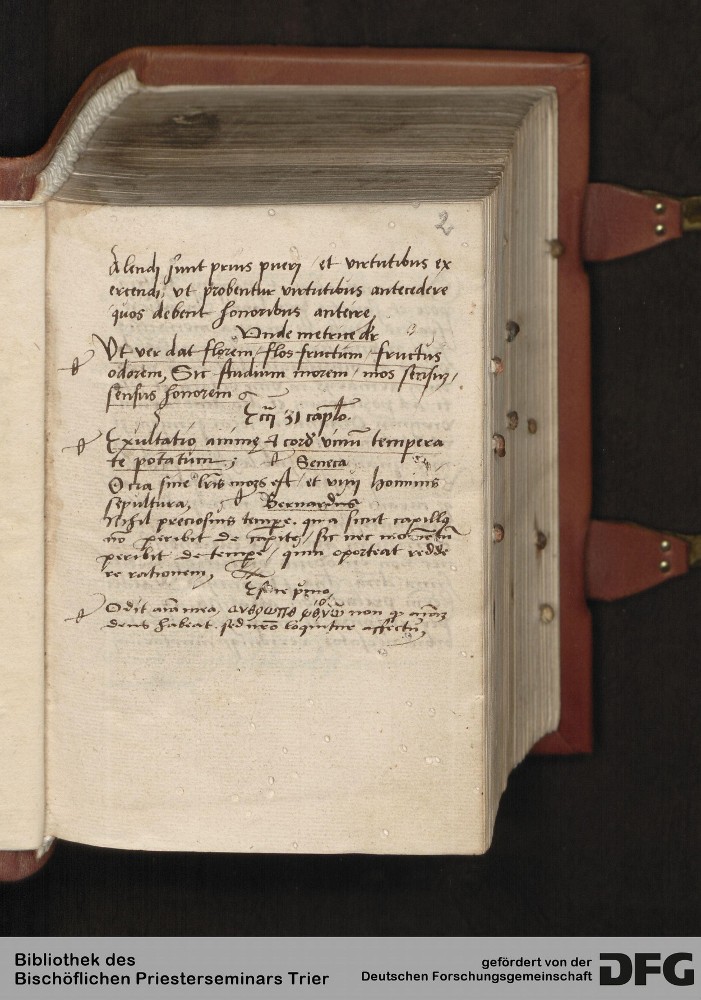 2
Alendi sunt prius pueri et virtutibus ex
ercendi, ut probentur virtutibus antecedere
quos debent honoribus anteire,
Unde metrice dr
Ut ver dat florem / flos fructum / fructus
odorem, Sic studium morem / mos sensum,
sensus honorem
Ecci 31 caplo.
Exultatio anime & cord vinū tempera
te potatum;
Seneca
Ocia sine lris mors est / et vivi hominis
sepultura,
Bernardus
Nihil preciosius tempe. quia sicut capillus
nō peribit de capite, sic nec momētū
peribit de tempe, quin oporteat redde
re rationem,
Esaie pmo,
Odit aīa mea, non
deus habeat. sed nro loquitur affectu,
Bibliothek des
Bischöflichen Priesterseminars Trier
gefördert von der
Deutschen Forschungsgemeinschaft
DFG